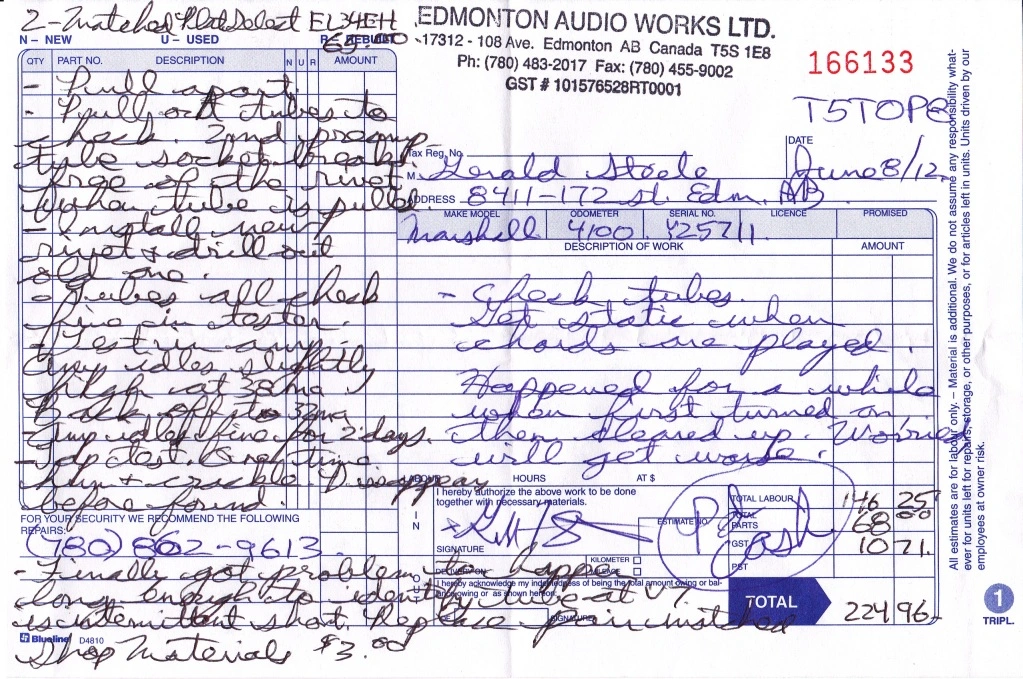 2-Matched Plat Select EL34EH
65.00
N – NEW U – USED R – REBUILT
EDMONTON AUDIO WORKS LTD.
17312 - 108 Ave. Edmonton AB Canada T5S 1E8
Ph: (780) 483-2017 Fax: (780) 455-9002
GST # 101576528RT0001
166133
T5T0P8
QTY PART NO. DESCRIPTION N U R AMOUNT
- Pull apart.
- Pull out tubes to
check. 2nd preamp
tube socket breaks
free of the rivet
when tube is pulled.
- Install new
rivet & drill out
old one.
- Tubes all check
fine in tester.
- Test in amp.
Amp idles slightly
high at 38ma.
Back off to 32ma
Amp idles fine for 2 days.
before found.
FOR YOUR SECURITY WE RECOMMEND THE FOLLOWING
REPAIRS:
(780) 862-9613
- Finally got problem to happen
long enough to identify tube at V7
is intermittent short. Replace pair matched
Blueline D4810
Shop Materials $3.00
Tax Reg. No.
DATE
June 8/12
M Gerald Steele
ADDRESS 8411-172 St. Edm. AB
MAKE MODEL ODOMETER SERIAL NO. LICENCE PROMISED
Marshall 4100 Y25711
DESCRIPTION OF WORK AMOUNT
- Check tubes.
Get static when
chords are played.
Happened for a while
when first turned on
then cleared up. Worries
will get worse.
HOURS AT $
I hereby authorize the above work to be done
together with necessary materials.
SIGNATURE
ESTIMATE NO.
Pd Cash
TOTAL LABOUR 146 25
TOTAL PARTS 68 00
GST 10 71
PST
KILOMETER
MILEAGE
I hereby acknowledge my indebtedness of being the total amount owing or bal-
ance owing or as shown hereon:
SIGNATURE
TOTAL 224.96
All estimates are for labour only. – Material is additional. We do not assume any responsibility what-
ever for units left for repairs, storage, or other purposes, or for articles left in units. Units driven by our
employees at owner risk.
1
TRIPL.